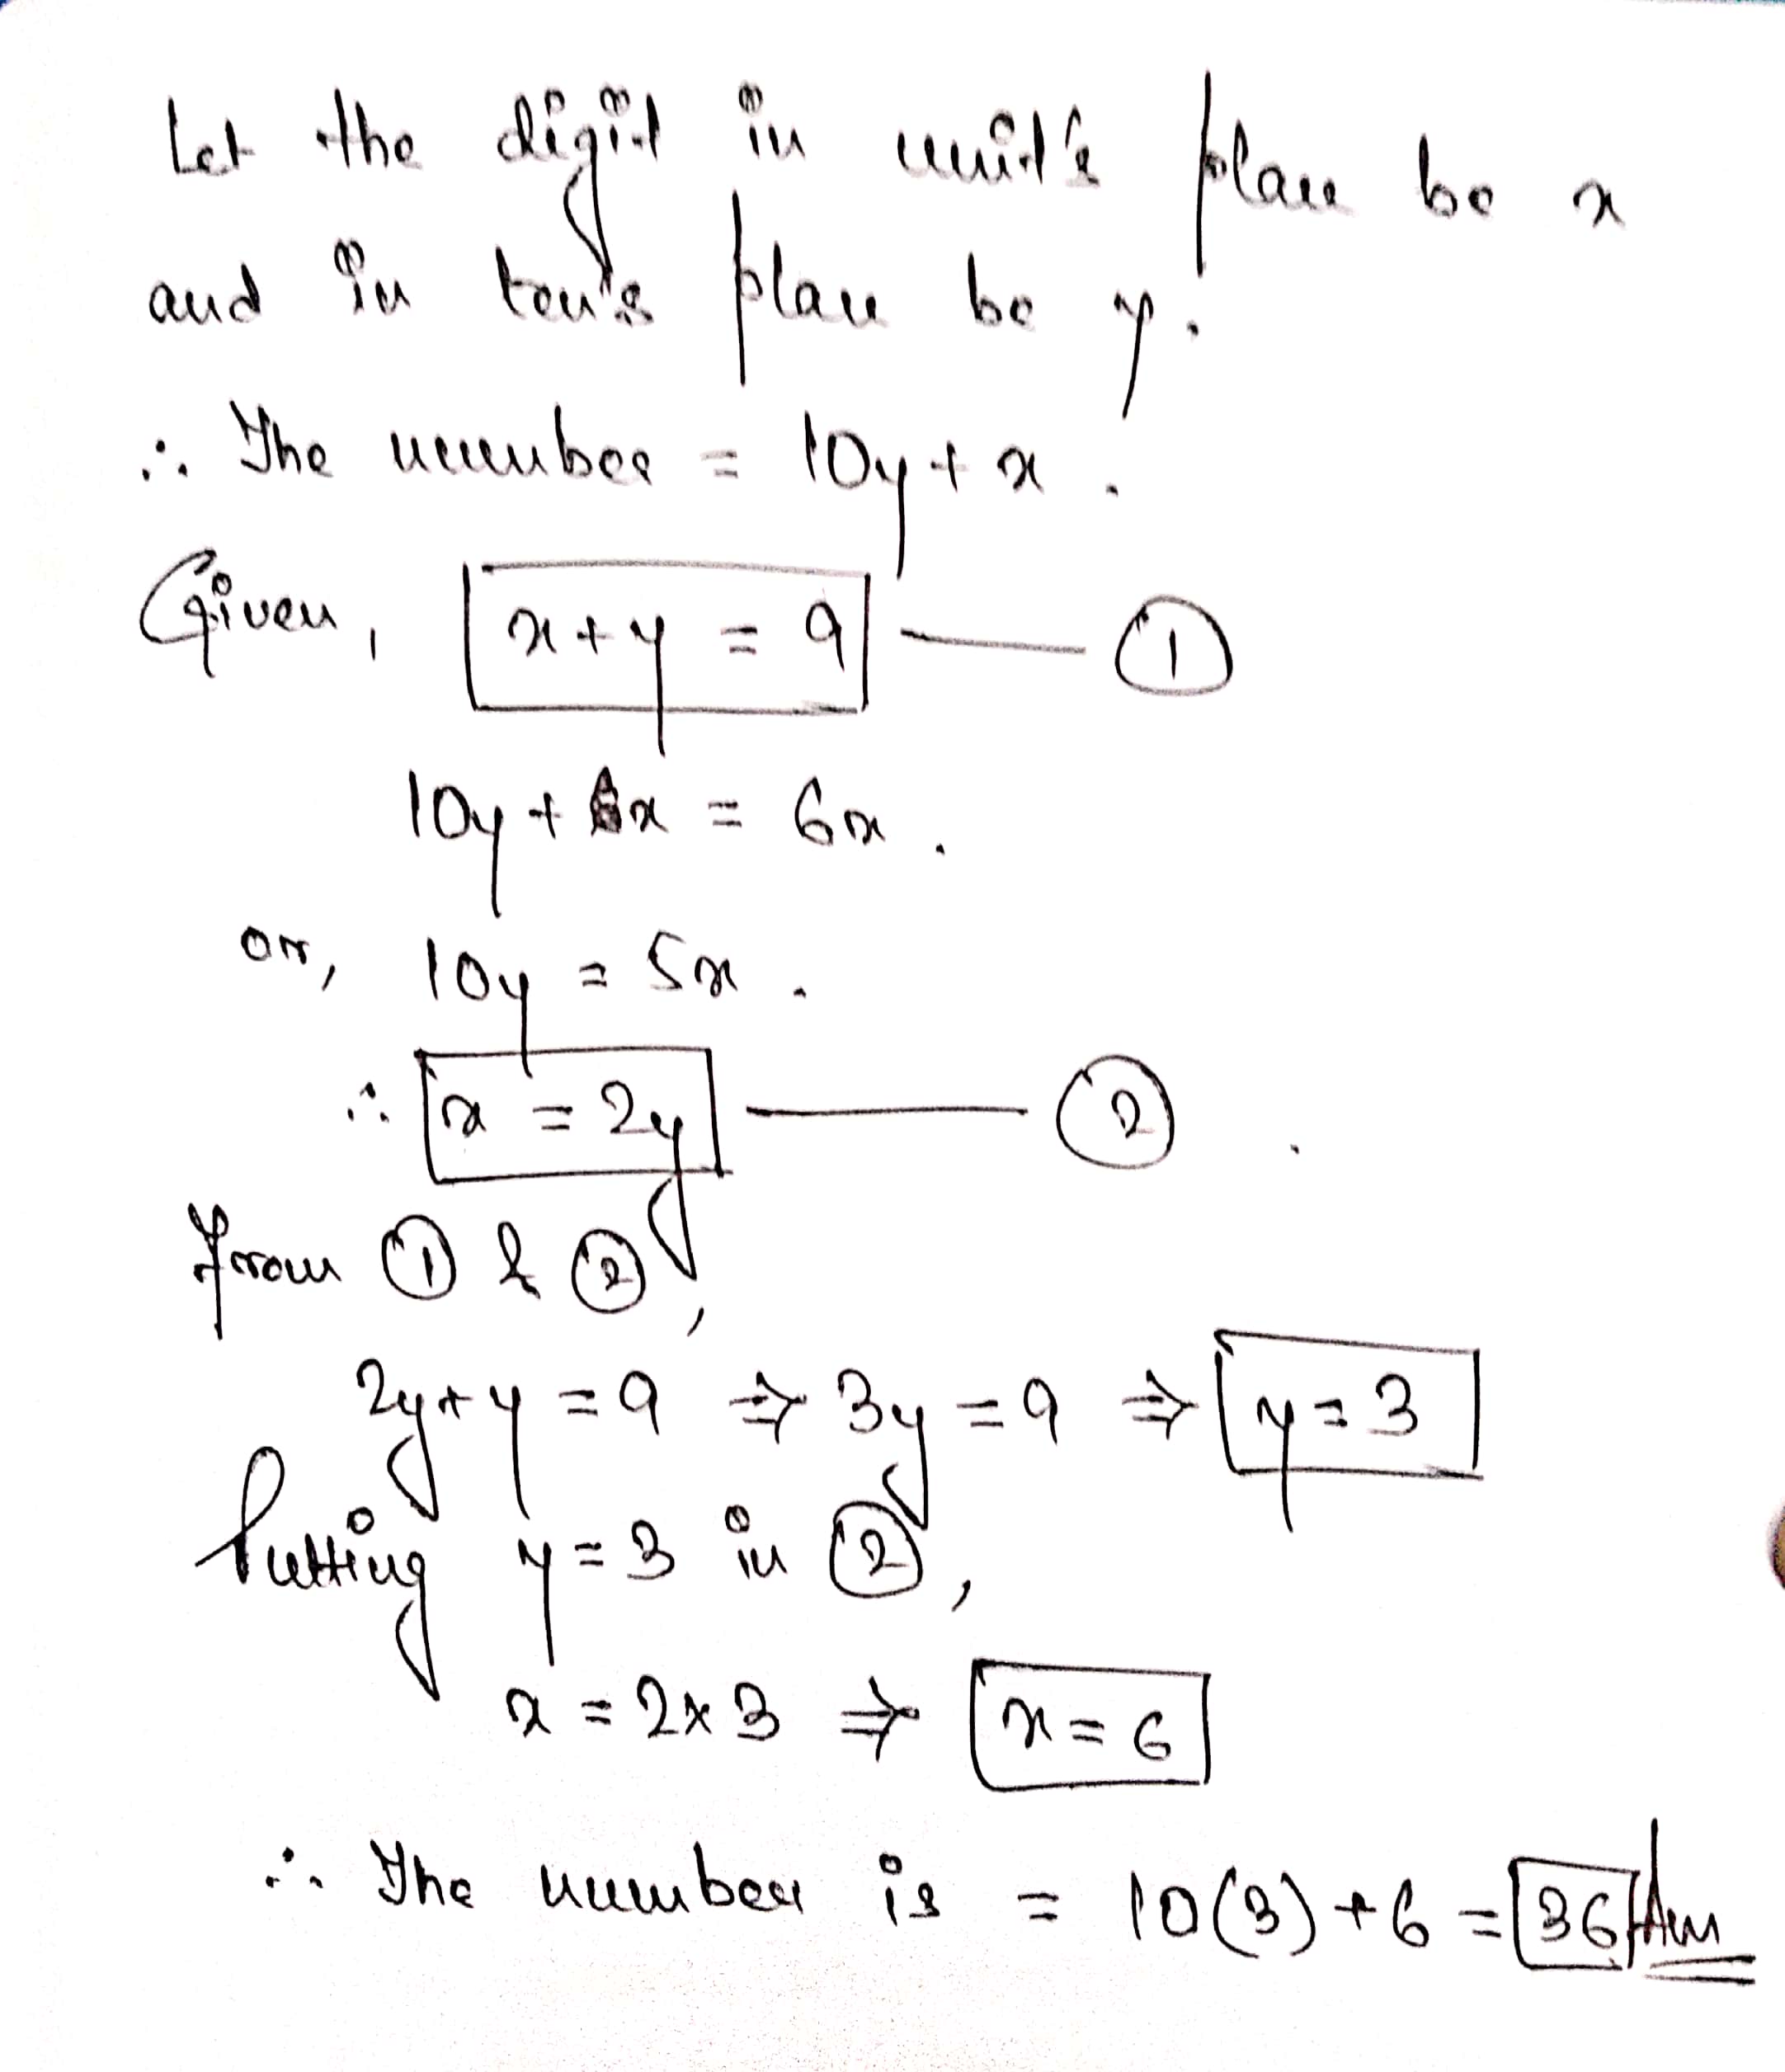 Let the digit in unit's place be x
and in ten's place be y.
∴ The number = 10y + x .
Given, x + y = 9 —— ①
10y + x = 6x .
or, 10y = 5x .
∴ x = 2y —— ②
From ① & ②,
2y + y = 9 ⇒ 3y = 9 ⇒ y = 3
Putting y = 3 in ②,
x = 2 × 3 ⇒ x = 6
∴ The number is = 10(3) + 6 = 36 Ans